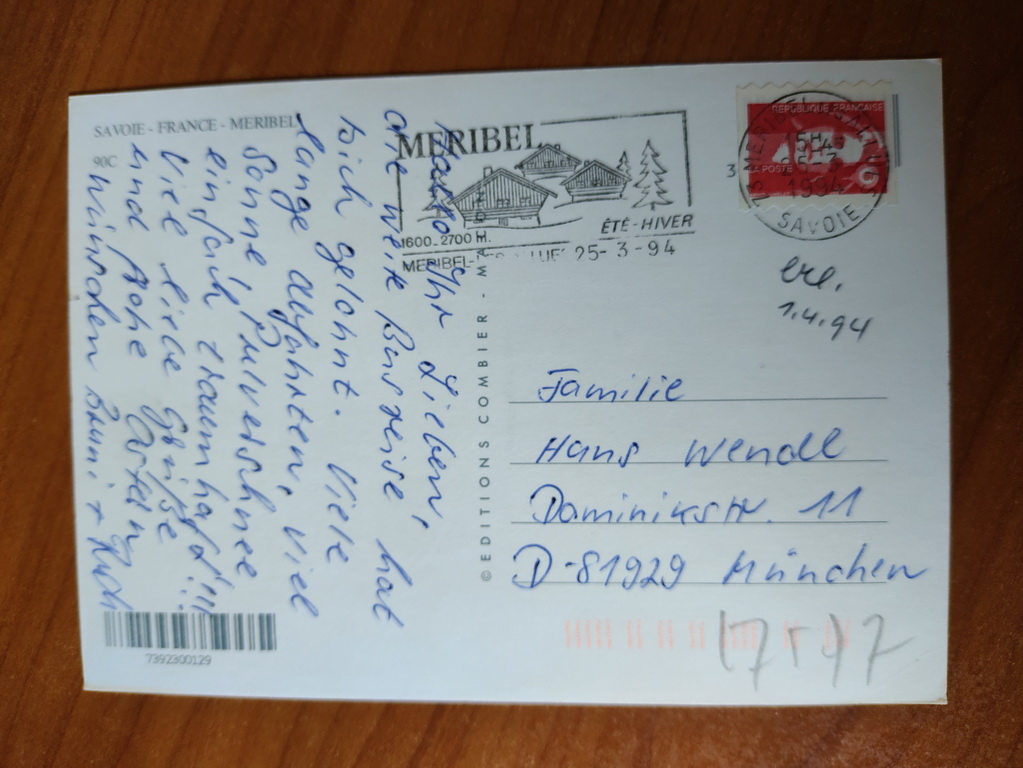 SAVOIE - FRANCE - MERIBEL
90C
Hallo Ihr Lieben,
die weite Busreise hat
sich gelohnt. Viele
lange Aufahrten, viel
Sonne, Pulverschnee
einfach traumhaft!!!
Viel liebe Grüße
und frohe Ostern
wünschen
MERIBEL
ÉTÉ-HIVER
1600-2700 M.
25-3-94
RÉPUBLIQUE FRANÇAISE
LA POSTE
15H
1994
SAVOIE
erl.
1.4.94
©EDITIONS COMBIER -
Familie
Hans Wendl
Dominikstr. 11
D-81929 München
7392300129